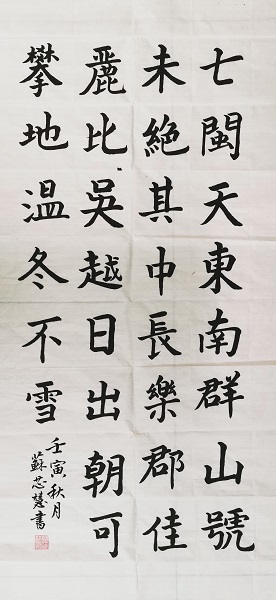 七閩天東南群山號
未絕其中長樂郡佳
麗比吳越日出朝可
攀地溫冬不雪
壬寅秋月
蘇芯慧書